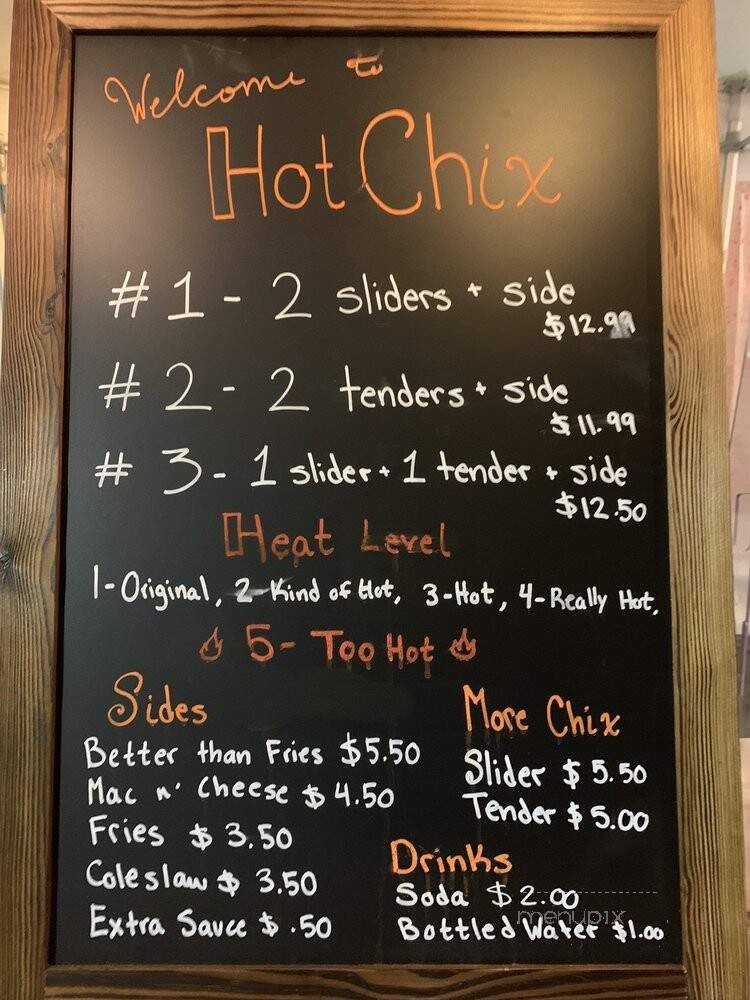 Welcome to
Hot Chix
#1 - 2 sliders + side
$12.99
#2 - 2 tenders + side
$11.99
#3 - 1 slider + 1 tender + side
$12.50
Heat Level
1-Original, 2-Kind of Hot, 3-Hot, 4-Really Hot,
5- Too Hot
Sides
Better than Fries $5.50
Mac n' Cheese $4.50
Fries $3.50
Coleslaw $3.50
Extra Sauce $.50
More Chix
Slider $5.50
Tender $5.00
Drinks
Soda $2.00
Bottled Water $1.00
menupix